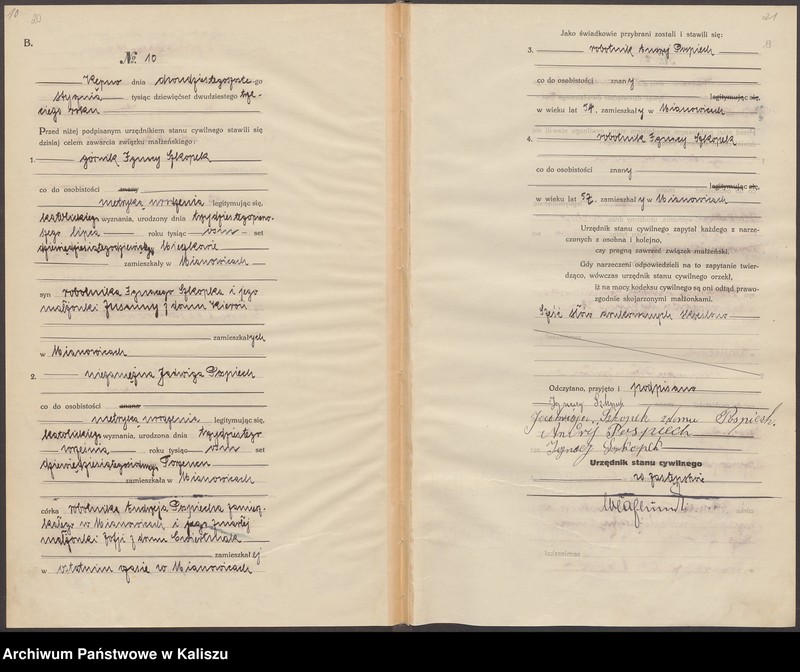 10
20
B.
№ 10
Kępno dnia dwudziestegopiątego
stycznia tysiąc dziewięćset dwudziestego trze-
ciego roku
Przed niżej podpisanym urzędnikiem stanu cywilnego stawili się
dzisiaj celem zawarcia związku małżeńskiego:
1. górnik Ignacy Szkopek
co do osobistości znany
metryką urodzenia legitymując się,
katolickiego wyznania, urodzony dnia trzydziestegopierw-
szego lipca roku tysiąc ośm set
dziewięćdziesiątego
zamieszkały w Mianowicach
syn robotnika Ignacego Szkopka i jego
małżonki Zuzanny z domu Kieroń
zamieszkałych
w Mianowicach
2. niezamężna Jadwiga Pospiech
co do osobistości znana
metryką urodzenia legitymując się,
katolickiego wyznania, urodzona dnia trzydziestego
września roku tysiąc ośm set
dziewięćdziesiątego
zamieszkała w Mianowicach
córka robotnika Andrzeja Pospiecha zamiesz-
kałego w Mianowicach i jego zmarłej
małżonki Zofji z domu
zamieszkałej
w ostatnim czasie w Mianowicach
21
Jako świadkowie przybrani zostali i stawili się:
3. robotnik Andrzej Pospiech
co do osobistości znany
legitymując się,
w wieku lat 54, zamieszkały w Mianowicach
4. robotnik Ignacy Szkopek
co do osobistości znany
legitymując się,
w wieku lat 57, zamieszkały w Mianowicach
Urzędnik stanu cywilnego zapytał każdego z narze-
czonych z osobna i kolejno,
czy pragną zawrzeć związek małżeński.
Gdy narzeczeni odpowiedzieli na to zapytanie twier-
dząco, wówczas urzędnik stanu cywilnego orzekł,
iż na mocy kodeksu cywilnego są oni odtąd prawo-
zgodnie skojarzonymi małżonkami.
Sześć słów drukowanych skreślono
Odczytano, przyjęto i podpisano
Ignacy Szkopek
Jadwiga Szkopek z domu Pospiech
Andrij Pospiech
Ignacy Szkopek
Urzędnik stanu cywilnego
w zastępstwie
Archiwum Państwowe w Kaliszu